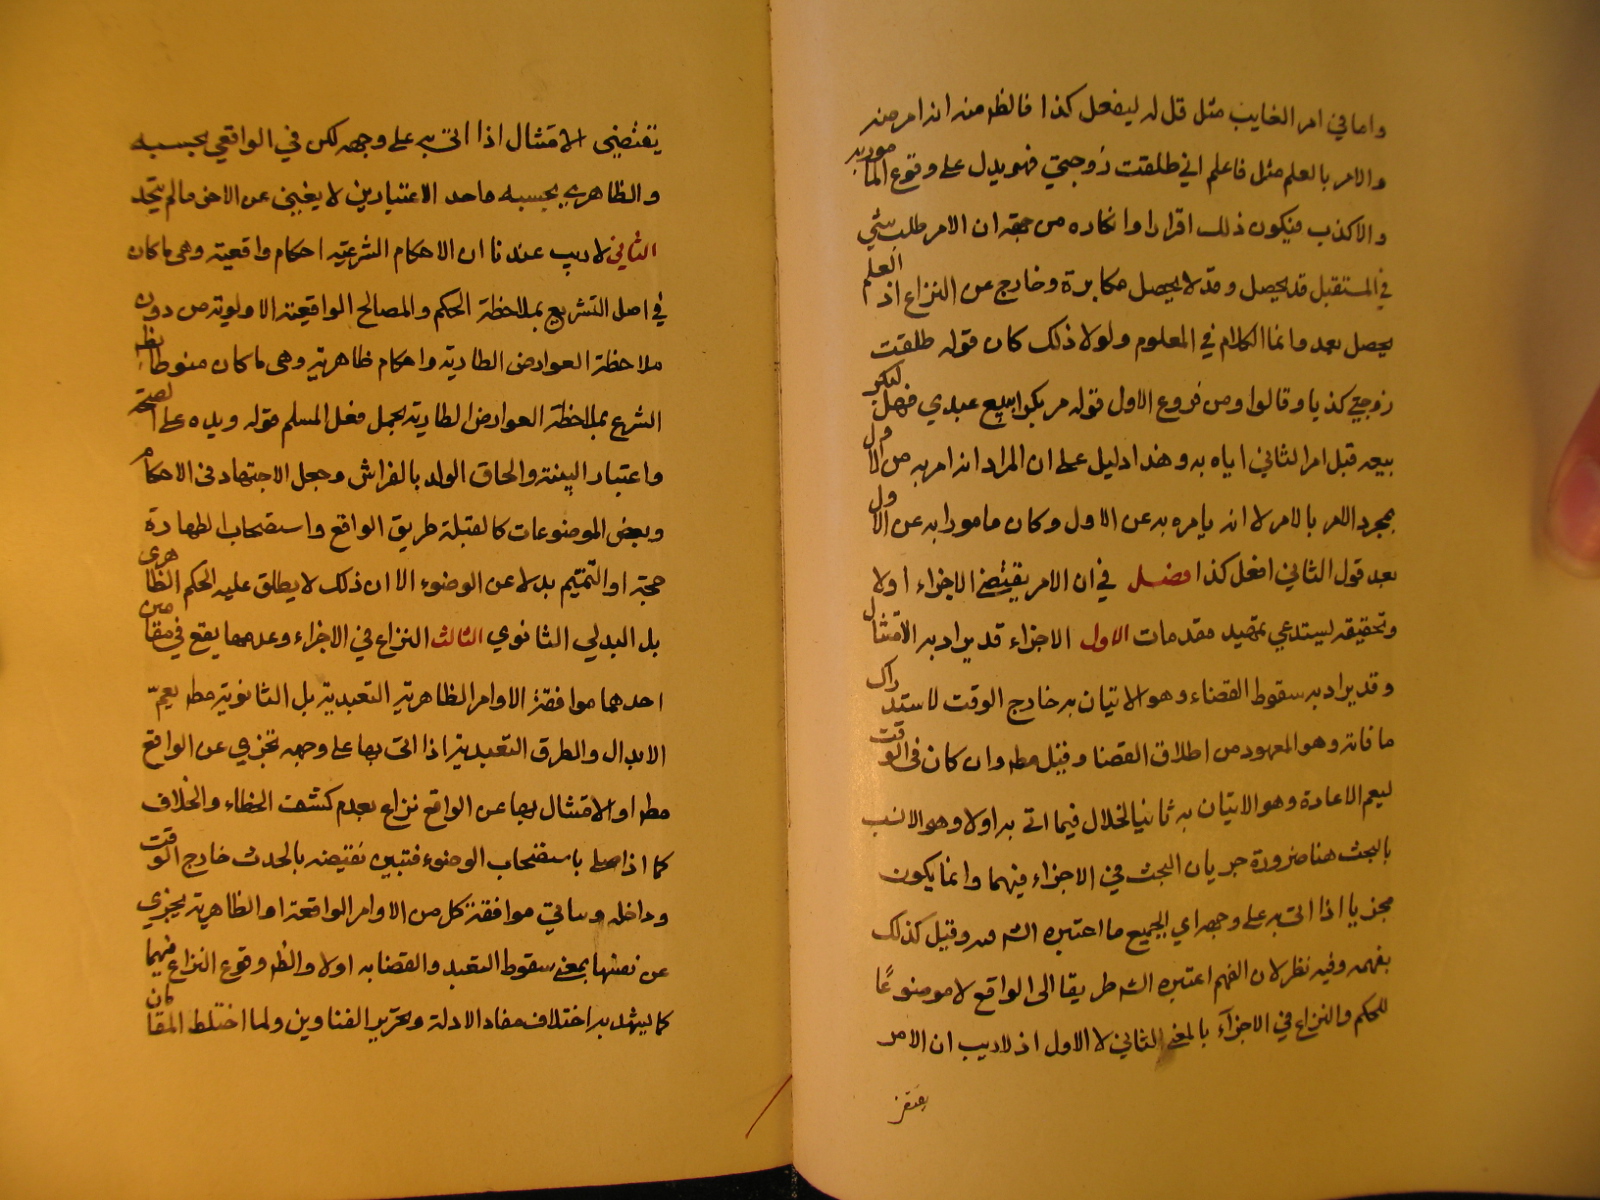 واما في امر الغايب مثل قل له ليفعل كذا فالظ منه انه امر منه
والامر بالعلم مثل فاعلم اني طلقت زوجتي فهو يدل على وقوع المامور به
والا كذب فيكون ذلك اقرارا وانكاره من جهة ان الامر طلب شئ
في المستقبل قد يحصل وقد لا يحصل مكابرة وخارج عن النزاع اذ العلم
يحصل بعد وانما الكلام في المعلوم ولولا ذلك كان قوله طلقت
زوجتي كذبا وقالوا ومن فروع الاول قوله مر بكرا ببيع عبدي فهل لبكر
بيعه قبل امر الثاني اياه به وهذا دليل على ان المراد انه امر به من الاول
بمجرد الامر بالامر لا انه يامره به عن الاول وكان مامورا به عن الاول
بعد قول الثاني افعل كذا فصل في ان الامر يقتضي الاجزاء اولا
وتحقيقه يستدعي تمهيد مقدمات الاول الاجزاء قد يراد به الامتثال
وقد يراد به سقوط القضاء وهو الاتيان به خارج الوقت لاستدراك
ما فاته وهو المعهود من اطلاق القضا وقيل مط وان كان في الوقت
ليعم الاعادة وهو الاتيان به ثانيا لخلال فيما اتى به اولا وهو الانسب
بالبحث هنا ضرورة جريان البحث في الاجزاء فيهما وانما يكون
مجزيا اذا اتى به على وجهه اي الجميع ما اعتبره الش فيه وقيل كذلك
بفهمه وفيه نظر لان الفهم اعتبره الش طريقا الى الواقع لا موضوعًا
للحكم والنزاع في الاجزآء بالمعنى الثاني لا الاول اذ لا ريب ان الامر
يقتضي
يقتضي الامتثال اذا اتى به على وجهه لكن في الواقعي بحسبه
والظاهري بحسبه فاحد الاعتبارين لا يغني عن الاخر ما لم يتحد
الثاني لا ريب عندنا ان الاحكام الشرعية احكام واقعية وهي ما كان
في اصل التشريع بملاحظة الحكم والمصالح الواقعية الاولوية من دون
ملاحظة العوارض الطارية واحكام ظاهرية وهي ما كان منوطا بنظر
الشرع بملاحظة العوارض الطارية بحمل فعل المسلم قوله ويده على الصحة
واعتبار البينة والحاق الولد بالفراش وجعل الاجتهاد في الاحكام
وبعض الموضوعات كالقبلة طريق الواقع واستصحاب الطهارة
حجة او التيمم بدلا عن الوضوء الا ان ذلك لا يطلق عليه الحكم الظاهري
بل البدلي الثانوي الثالث النزاع في الاجزاء وعدمها يقع في مقامين
احدهما موافقة الاوامر الظاهرية التعبدية بل الثانوية مط يعمّ
الابدال والطرق التعبدية اذا اتى بها على وجهه تجزي عن الواقع
مط او الامتثال بها عن الواقع نزاع بعدم كشف الخطاء والخلاف
كما اذا صلى باستصحاب الوضوء فتبين نقيضه بالحدث خارج الوقت
وداخله وساني موافقة كل من الاوامر الواقعة او الظاهرية يجزي
عن نفسها بمعنى سقوط التعبد والقضا به اولا والظ وقوع النزاع فيهما
كما يشهد به اختلاف مفاد الادلة وتحرير العناوين ولما اختلط المقامان